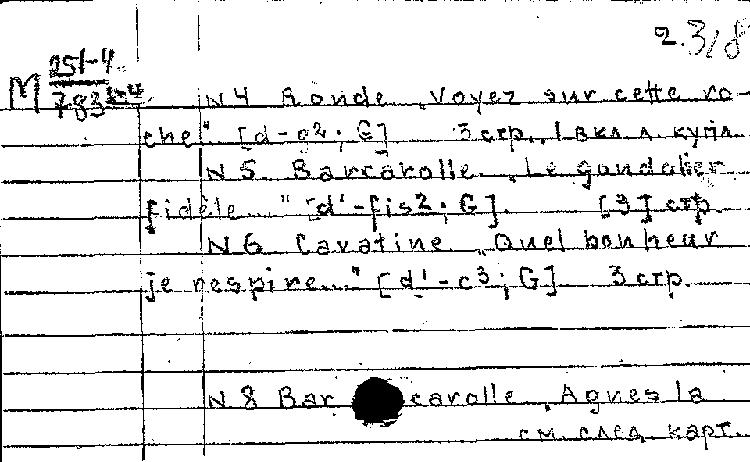 2.3/8
М 251-4
783
N 4 Ronde „Voyez sur cette ro-
che" [d-g2; G] 3 стр., 1 вкл. л. купл.
N 5 Barcarolle „Le gondolier
fidèle..." [d'-fis2; G]. [3] стр.
N 6 Cavatine „Quel bonheur
je respire..." [d'-c3; G] 3 стр.
N 8 Barcarolle „Agnes la
см. след. карт.